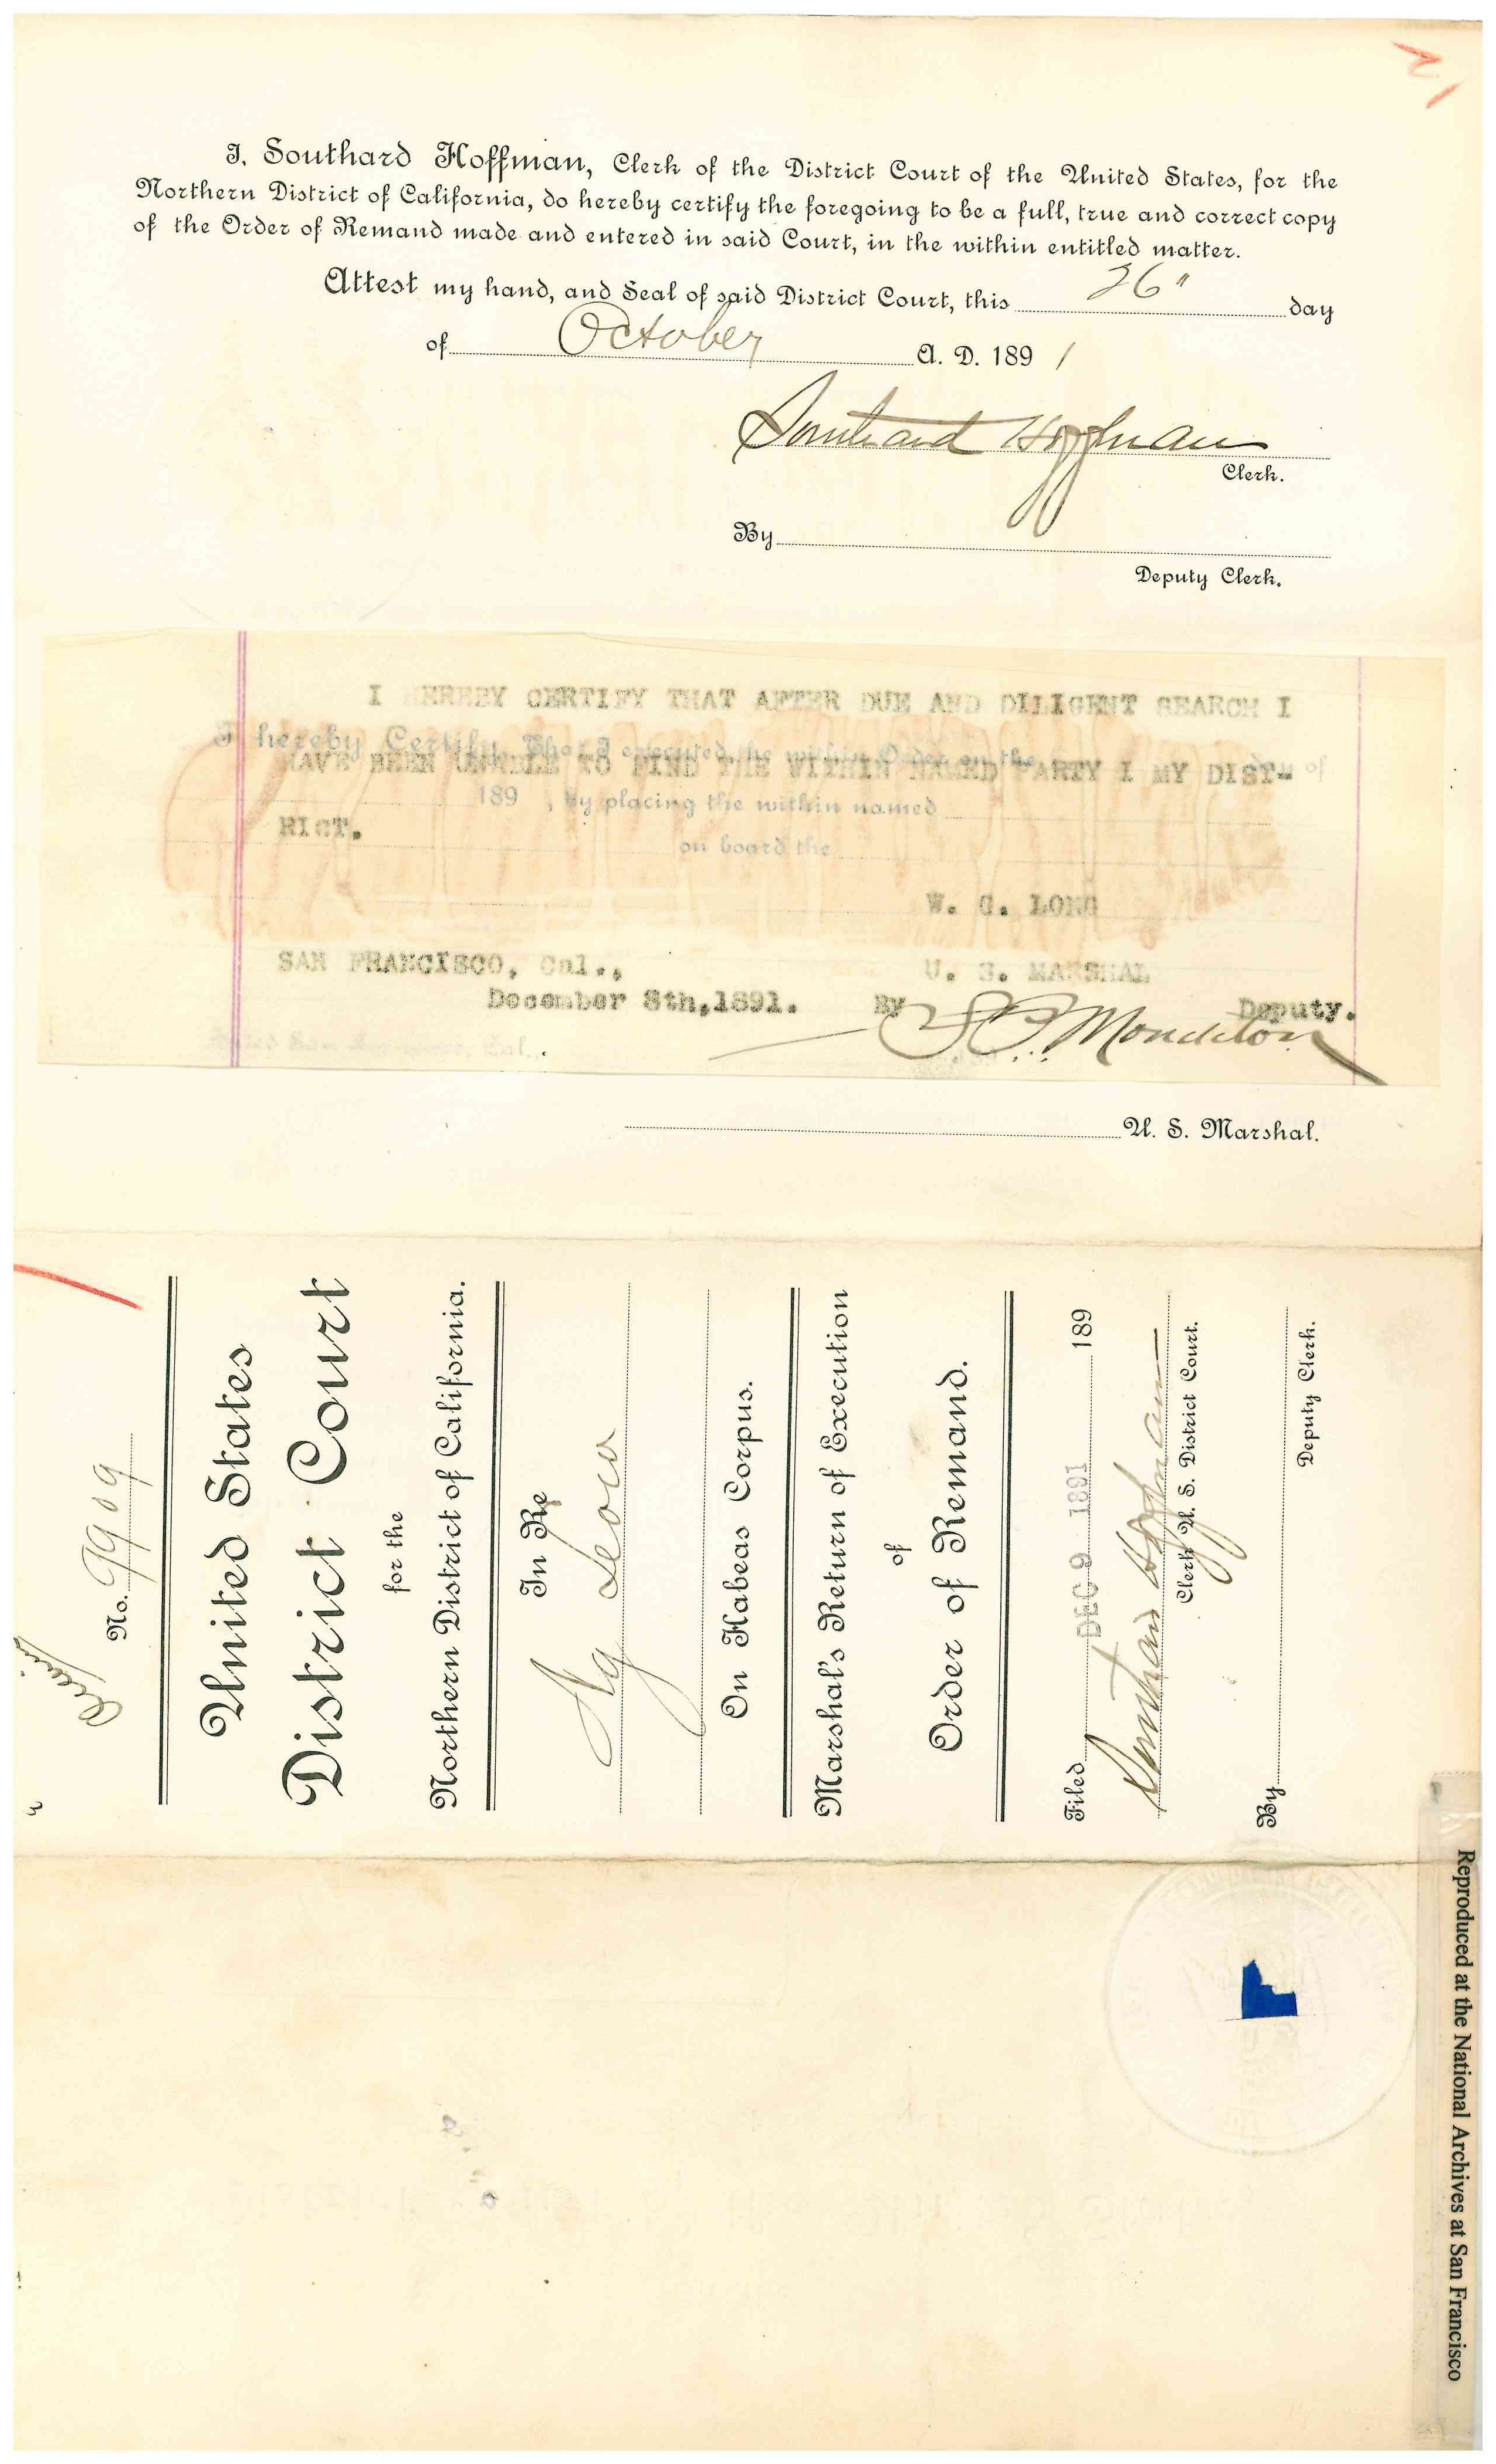 I, Southard Hoffman, Clerk of the District Court of the United States, for the
Northern District of California, do hereby certify the foregoing to be a full, true and correct copy
of the Order of Remand made and entered in said Court, in the within entitled matter.
Attest my hand, and Seal of said District Court, this 26" day
of October A. D. 1891
Southard Hoffman
Clerk.
By
Deputy Clerk.
I HEREBY CERTIFY THAT AFTER DUE AND DILIGENT SEARCH I
I hereby Certify That I executed the within Order on the day of
HAVE BEEN UNABLE TO FIND THE WITHIN NAMED PARTY I MY DIST-
189 , by placing the within named
RICT.
on board the
W. G. LONG
SAN FRANCISCO, Cal.,
U. S. MARSHAL
December 8th, 1891. By Deputy.
U. S. Marshal.
No. 9909
United States
District Court
for the
Northern District of California.
In Re
On Habeas Corpus.
Marshal's Return of Execution
of
Order of Remand.
Filed DEC 9 1891 189
Southard Hoffman
Clerk U. S. District Court.
By
Deputy Clerk.
Reproduced at the National Archives at San Francisco